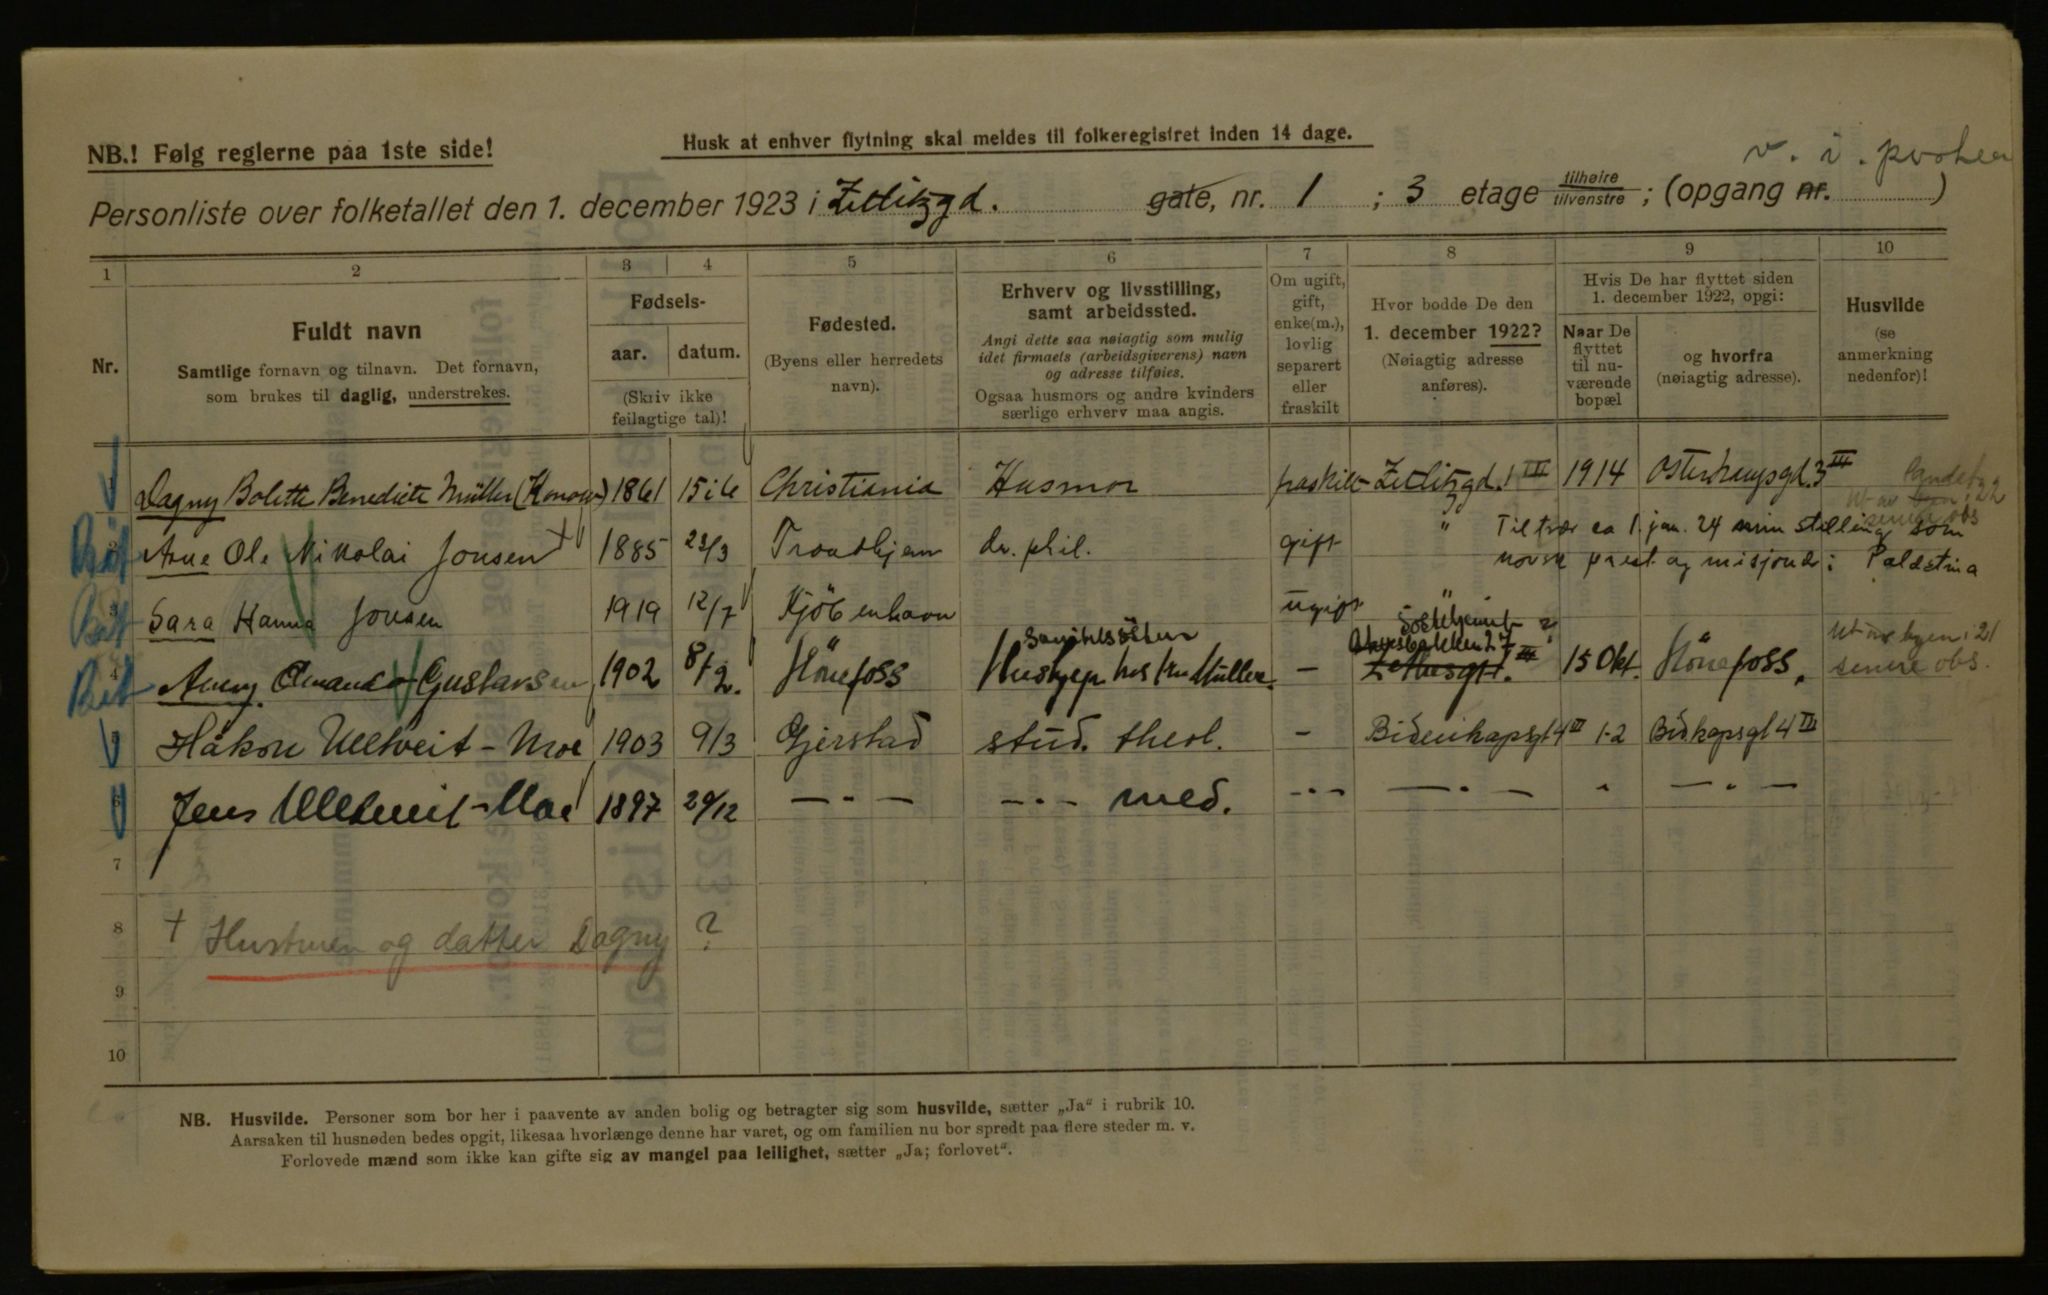 NB.! Følg reglerne paa 1ste side!
Husk at enhver flytning skal meldes til folkeregistret inden 14 dage.
v. i.
Personliste over folketallet den 1. december 1923 i Zetlitzgd. gate, nr. 1 ; 3 etage tilhøire tilvenstre ; (opgang nr. )
1 2 3 4 5 6 7 8 9 10
Nr.
Fuldt navn
Samtlige fornavn og tilnavn. Det fornavn,
som brukes til daglig, understrekes.
Fødsels-
aar. datum.
(Skriv ikke
feilagtige tal)!
Fødested.
(Byens eller herredets
navn).
Erhverv og livsstilling,
samt arbeidssted.
Angi dette saa nøiagtig som mulig
idet firmaets (arbeidsgiverens) navn
og adresse tilføies.
Ogsaa husmors og andre kvinders
særlige erhverv maa angis.
Om ugift,
gift,
enke(m.),
lovlig
separert
eller
fraskilt
Hvor bodde De den
1. december 1922?
(Nøiagtig adresse
anføres).
Hvis De har flyttet siden
1. december 1922, opgi:
Naar De
flyttet
til nu-
værende
bopæl
og hvorfra
(nøiagtig adresse).
Husvilde
(se
anmerkning
nedenfor)!
Dagny Bolette Benedicte Müller (Konow) 1861 15/6 Christiania Husmor fraskilt Zetlitzgd. 1 III 1914 Osterhausgd. 3 III
Arne Ole Nikolai Jonsen + 1885 23/3 Trondhjem dr. phil. gift " Tiltrær ca 1. jan. 24 min stilling som
norsk prest og misjonær i Palæstina
Sara Hanna Jonsen 1919 12/7 Kjöbenhavn ugift "
4 Amanda Gustavsen 1902 8/2. Hönefoss Müller. - 15 Okt. Hönefoss, ut av byen i 21
senere obs.
Håkon Ulltveit-Moe 1903 9/3 Gjerstad stud. theol. - 1-2
6 Jens Ulltveit-Moe 1897 29/12 — " — — " — med. — " — — " — " — " —
7
8 + Hustruen og datter Dagny ?
9
10
NB. Husvilde. Personer som bor her i paavente av anden bolig og betragter sig som husvilde, sætter „Ja“ i rubrik 10.
Aarsaken til husnøden bedes opgit, likesaa hvorlænge denne har varet, og om familien nu bor spredt paa flere steder m. v.
Forlovede mænd som ikke kan gifte sig av mangel paa leilighet, sætter „Ja; forlovet“.